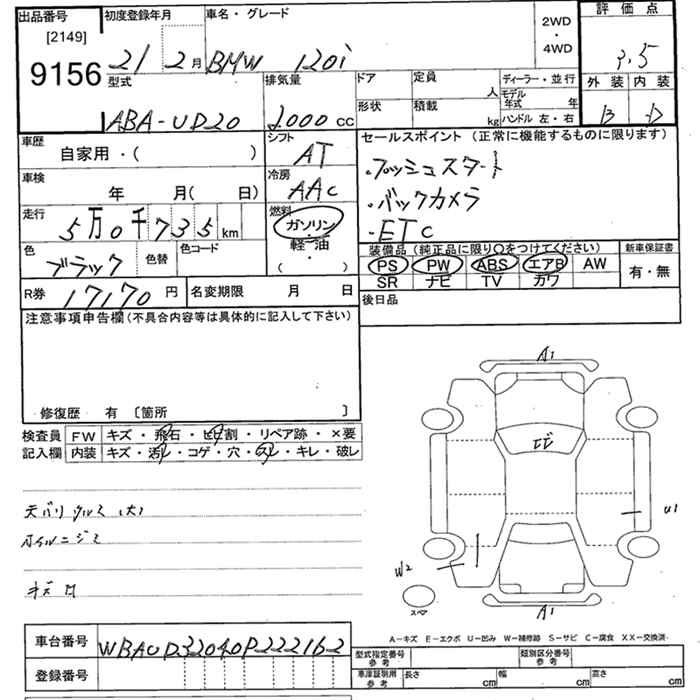 出品番号
[2149]
9156
初度登録年月
21 2月
車名・グレード
BMW 120i
2WD
・
4WD
評価点
3.5
外装 内装
B D
型式
ABA-UD20
排気量
2000 cc
ドア
定員
人
形状
積載
kg
ディーラー・並行
モデル年式
年
ハンドル 左・右
車歴
自家用・( )
シフト
AT
セールスポイント(正常に機能するものに限ります)
・プッシュスタート
・バックカメラ
・ETC
車検
年 月( 日)
冷房
AAC
走行
5万0千735km
燃料
ガソリン
軽油
・
( )
色
ブラック
色替
色コード
装備品(純正品に限り○をつけてください)
新車保証書
PS PW ABS エアB AW
SR ナビ TV カワ
有・無
R券 17170円
名変期限 月 日
後日品
注意事項申告欄(不具合内容等は具体的に記入して下さい)
・修復歴 有 〔箇所 〕
検査員
記入欄
FW キズ・飛石・ヒビ割・リペア跡・×要
内装 キズ・汚レ・コゲ・穴・スレ・キレ・破レ
天バリタルミ(大)
オイルニジミ
A1
U1
W2
スペア
A1
A-キズ E-エクボ U-凹み W-補修跡 S-サビ C-腐食 XX-交換済
車台番号 WBAUD32040P222162
登録番号
型式指定番号
参考
類別区分番号
参考
車庫証明用
参考
長さ cm
幅 cm
高さ cm